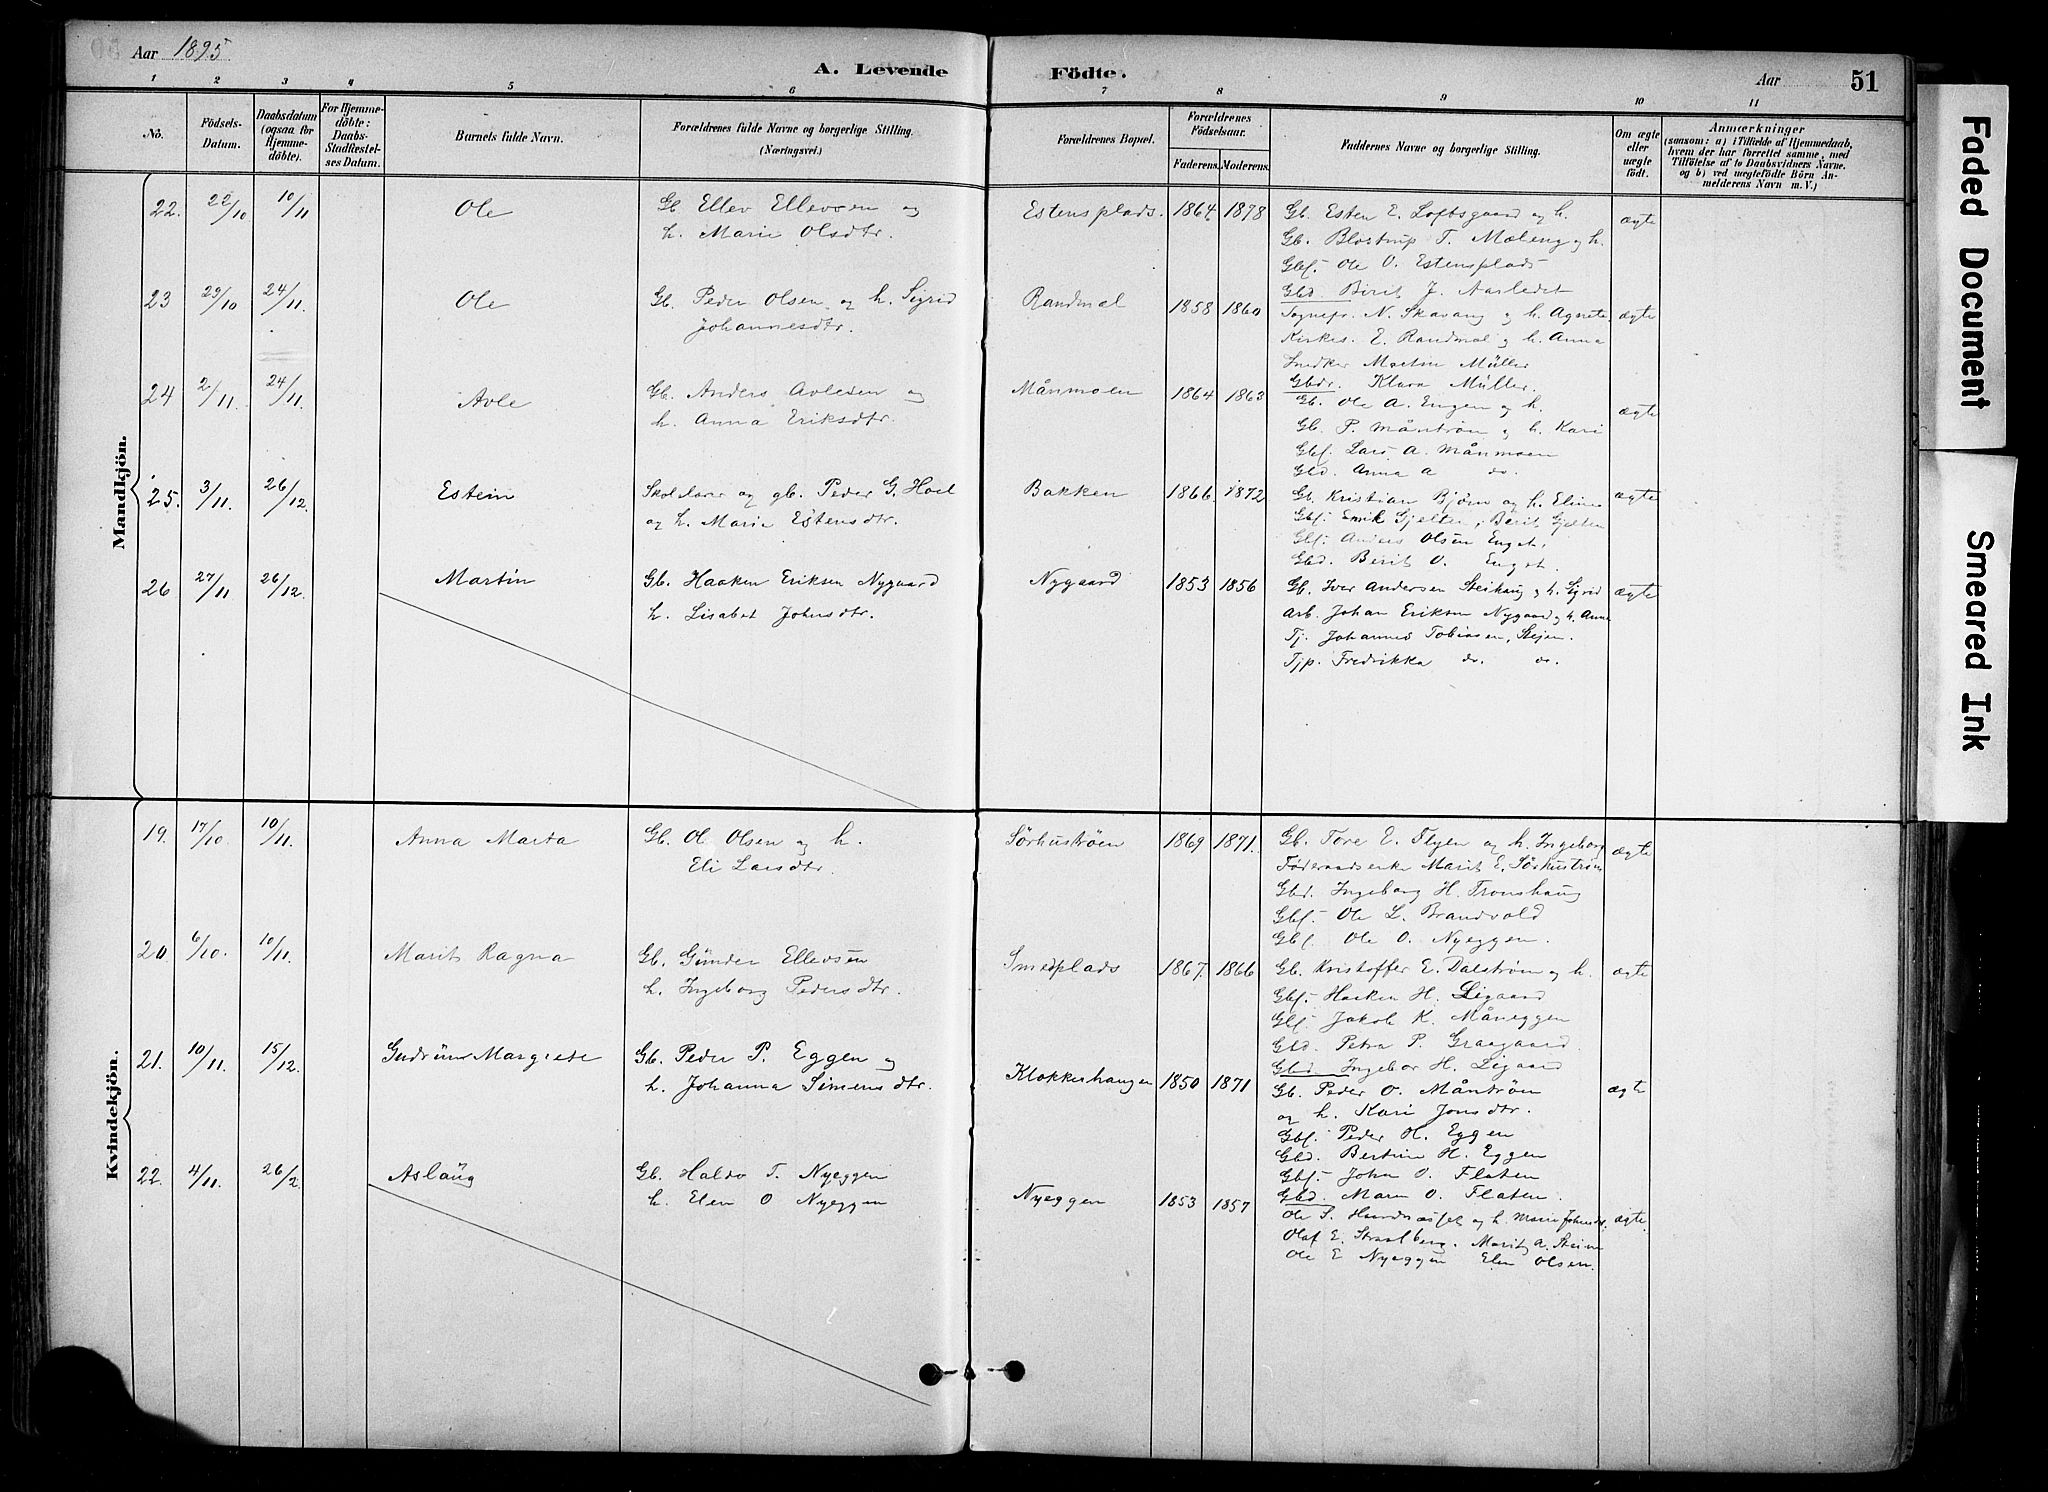 Aar 1895
A. Levende
Födte.
Aar
51
1 2 3 4 5 6 7 8 9 10 11
No.
Födsels-
Datum.
Daabsdatum
(ogsaa for
Hjemme-
döbte).
For Hjemme-
döbte:
Daabs-
Stadfæstel-
ses Datum.
Barnets fulde Navn.
Forældrenes fulde Navne og borgerlige Stilling.
(Næringsvei.)
Forældrenes Bopæl.
Forældrenes
Födselsaar.
Faderens.
Moderens.
Faddernes Navne og borgerlige Stilling.
Om ægte
eller
uægte
födt.
Anmærkninger
(saasom: a) i Tilfælde af Hjemmedaab,
hvem der har forrettet samme, med
Tilföielse af to Daabsvidners Navne.
og b) ved uægtefödte Börn An-
melderens Navn m. V.)
Mandkjön.
22. 22/10 10/11 Ole
Gb Ellev Ellevsen og
h. Marie Olsdtr.
Estensplads. 1864. 1878
Gb. Esten E. Loftsgaard og h.
Gb. Blostrup T. Mæleng og h.
Gbf. Ole O. Estensplads
Gbd. Birit J. Aasledet
ægte
23 29/10 24/11. Ole
Gb. Peder Olsen og h. Sigrid
Johannesdtr.
Randmæl 1858 1860
Sognepr. N. Skavang og h. Agnete
Kirkes. E. Randmæl og h. Anna
Martin Müller
Gbdr. Klara Müller.
ægte
24 2/11. 24/11. Avle
Gb. Anders Avlesen og
h. Anna Eriksdtr.
Månmoen 1864 1863
Gb. Ole A. Engen og h.
Gb. P. Månstrøm og h. Kari
Gbf. Lars A. Månmoen
Gbd. Anna A do.
ægte
25. 3/11. 26/12. Estein
Skolelærer og gb. Peder G. Hoel
og h. Marie Estensdtr.
Bakken 1866 1872
Gb. Kristian Bjørn og h. Eline
Gbf. Emik Gjelten, Berit Gjelten
Gbf. Anders Olsen Enget,
Gbd. Berit O. Enget.
ægte
26 27/11 26/12. Martin
Gb. Haaken Eriksen Nygaard
h. Lisabet Johnsdtr.
Nygaard 1853 1856
Gb. Iver Andersen Steihaug og h. Sigrid
Arb. Johan Eriksen Nygaard og h. Anne
Tj. Johannes Tobiasen, Steien.
Tjp. Fredrikka do. do.
ægte
Kvindekjön.
19. 17/10 10/11. Anna Marta
Gb. Ol. Olsen og h.
Eli Larsdtr.
Sørhustrøen 1869 1871.
Gb. Tore E. Flyen og h. Ingeborg
Føderaadsenke Marit E. Sørhustrøen
Gbd. Ingeborg H. Tronshaug
Gbf. Ole L. Brandvold
Gbf Ole O. Nyeggen.
ægte
20. 6/10. 10/11. Marit Ragna
Gb. Gunder Ellevsen
h. Ingeborg Pedersdtr.
Smedplads 1867. 1866
Gb. Kristoffer E. Dalstrøm og h.
Gbf. Haaken H. Ligaard
Gbf. Jakob K. Måneggen
Gbd. Petra P. Graagaard.
Gbd Ingebor H. Ligaard
ægte
21. 10/11. 15/12. Gudrun Margrete
Gb. Peder P. Eggen og
h. Johanna Simensdtr.
Klokkerhaugen 1850 1871
Gb. Peder O. Måntrøm
og h. Kari Jonsdtr.
Gbf. Peder H. Eggen
Gbd. Bertine H. Eggen
Gbf. John O. Flaten
Gbd. Maren O. Flaten.
ægte
22. 4/11. 26/2. Aslaug
Gb. Haldo T. Nyeggen
h. Elen O Nyeggen
Nyeggen 1853 1857
Ole S. og h. Marie Johnsd.
Olaf E. Straalberg. Marit A. Steien
Ole E Nyeggen Elen Olsen.
ægte
Faded Document
Smeared Ink